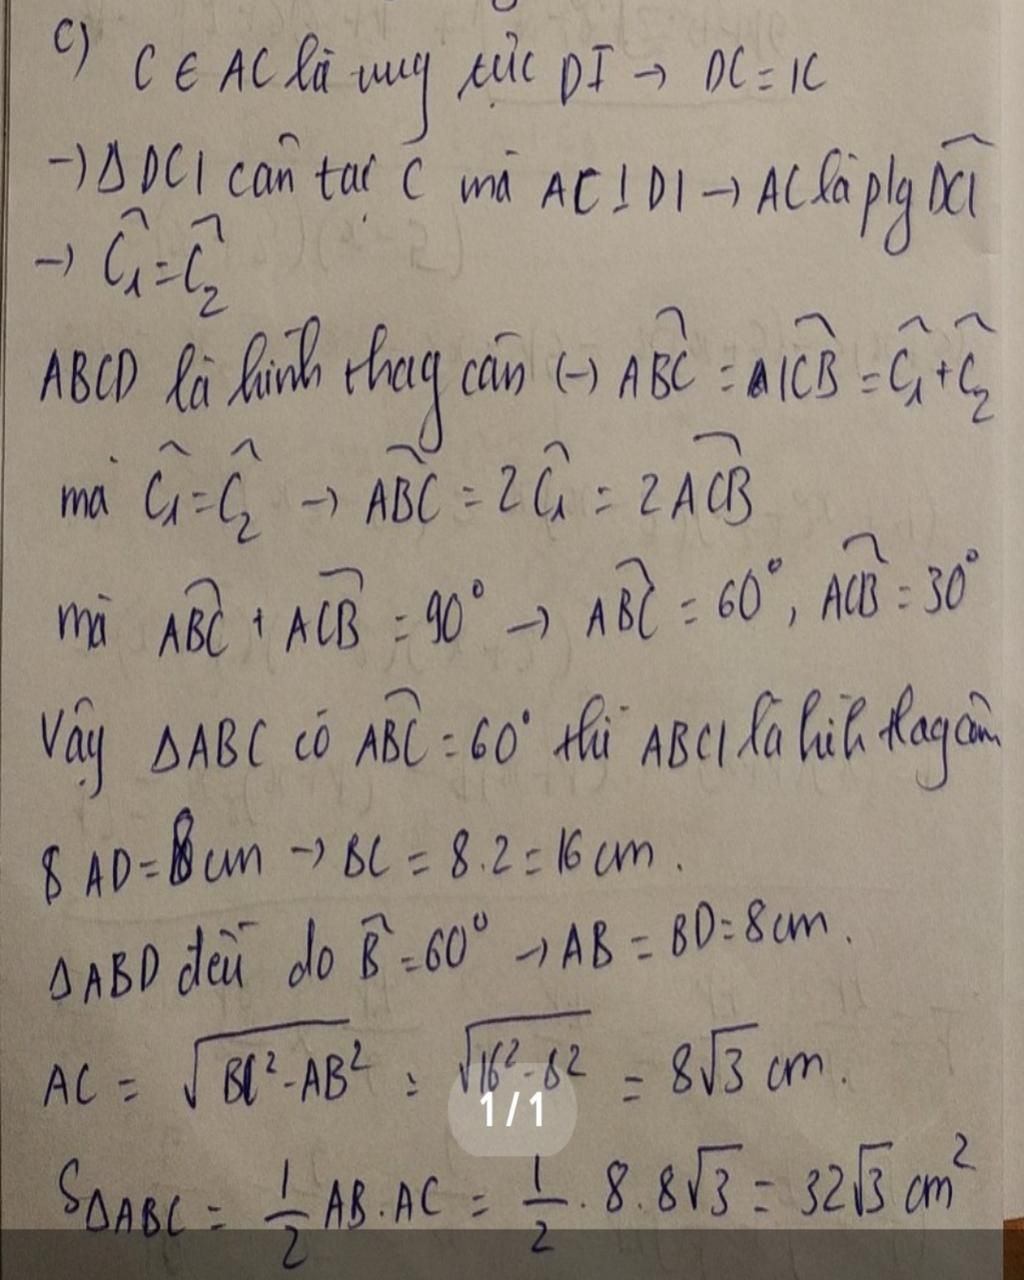 c)
C ∈ AC là ung trực DI → DC = IC
→ Δ DCI cân tại C mà AC ⊥ DI → AC là p/g \widehat{DCI}
→ \widehat{C_1} = \widehat{C_2}
ABCD là hình thag cân (→ \widehat{ABC} = \widehat{ICB} = \widehat{C_1} + \widehat{C_2}
mà \widehat{C_1} = \widehat{C_2} → \widehat{ABC} = 2\widehat{C_1} = 2\widehat{ACB}
mà \widehat{ABC} + \widehat{ACB} = 90° → \widehat{ABC} = 60°, \widehat{ACB} = 30°
Vậy ΔABC có \widehat{ABC} = 60° thì ABCI là hìh thag cân
AD = 8 cm → BC = 8.2 = 16 cm.
ΔABD đều do \widehat{B} = 60° → AB = BD = 8 cm.
AC = \sqrt{BC² - AB²} = \sqrt{16² - 8²} = 8√3 cm.
1/1
S_{ΔABC} = \frac{1}{2} AB.AC = \frac{1}{2} . 8 . 8√3 = 32√3 cm²